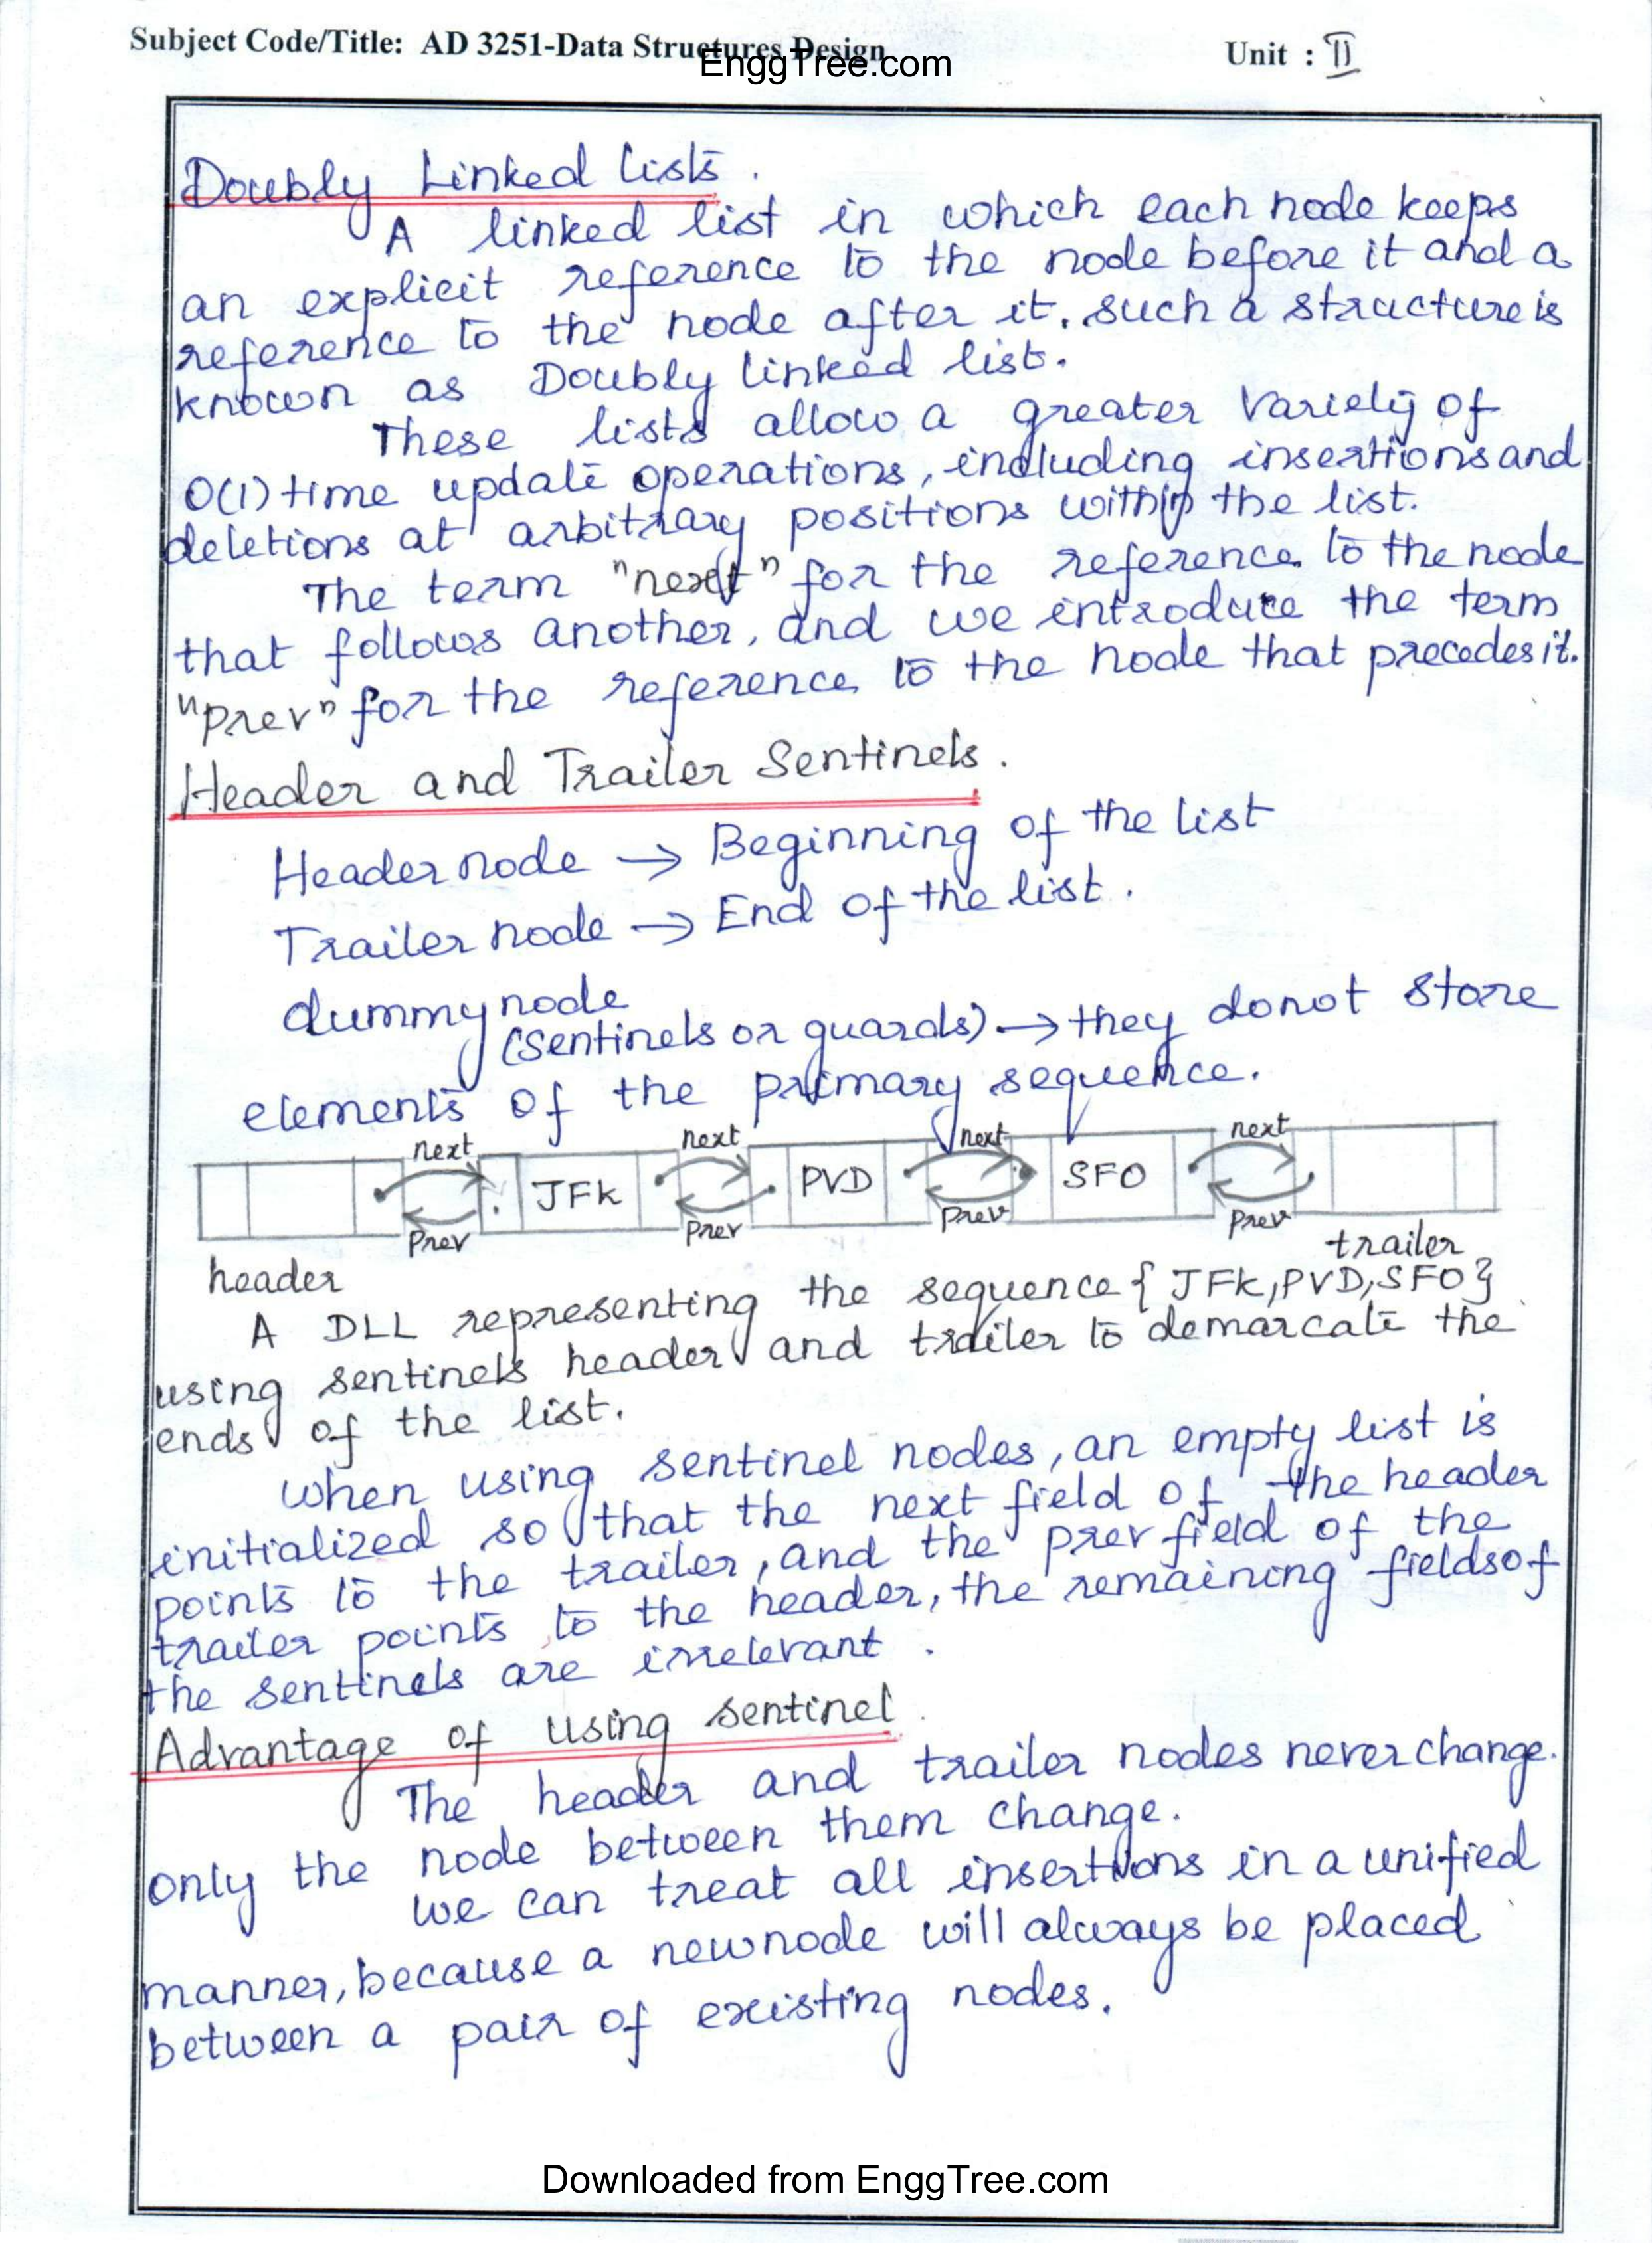 Subject Code/Title: AD 3251-Data Structures Design
EnggTree.com
Unit : II
Doubly Linked Lists.
A linked list in which each node keeps
an explicit reference to the node before it and a
reference to the node after it. such a structure is
known as Doubly linked list.
These lists allow a greater variety of
O(1) time update operations, including insertions and
deletions at arbitrary positions within the list.
The term "next" for the reference to the node
that follows another, and we introduce the term
"prev" for the reference to the node that precedes it.
Header and Trailer Sentinels.
Header node → Beginning of the list
Trailer node → End of the list.
dummy node
(sentinels or guards) → they donot store
elements of the primary sequence.
next next next next
JFK PVD SFO
Prev Prev Prev Prev
header trailer
A DLL representing the sequence { JFK, PVD, SFO }
using sentinels header and trailer to demarcate the
ends of the list.
When using sentinel nodes, an empty list is
initialized so that the next field of the header
points to the trailer, and the prev field of the
trailer points to the header, the remaining fields of
the sentinels are irrelevant.
Advantage of using sentinel
The header and trailer nodes never change.
only the node between them change.
we can treat all insertions in a unified
manner, because a new node will always be placed
between a pair of existing nodes.
Downloaded from EnggTree.com